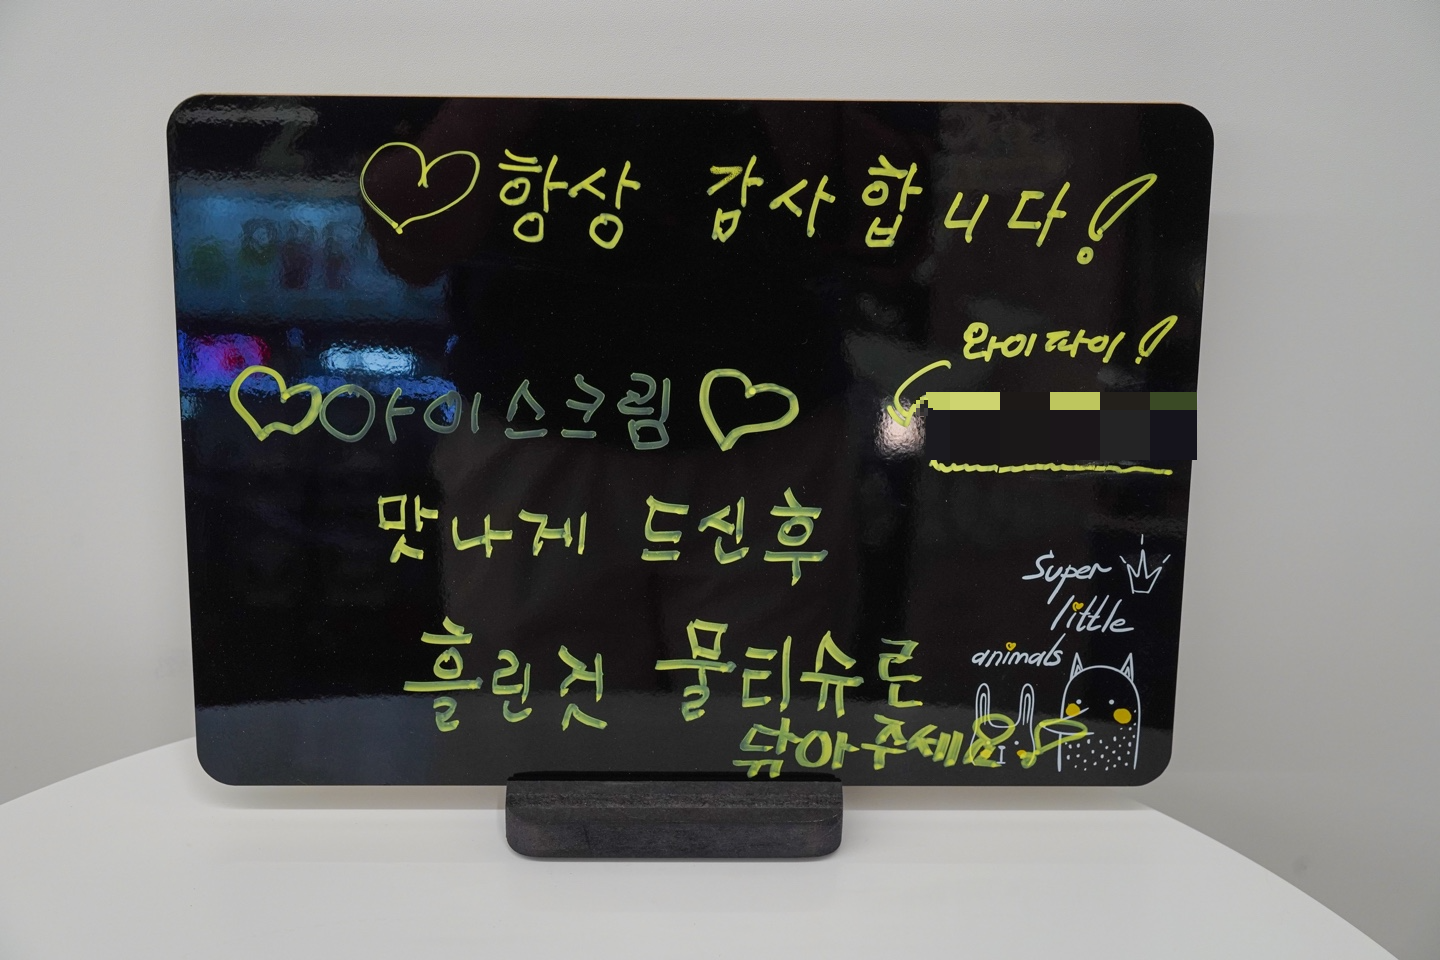 ♡항상 감사합니다!
와이파이!
♡아이스크림♡
맛나게 드신후
흘린것 물티슈로
닦아주세요♡
Super
little
animals